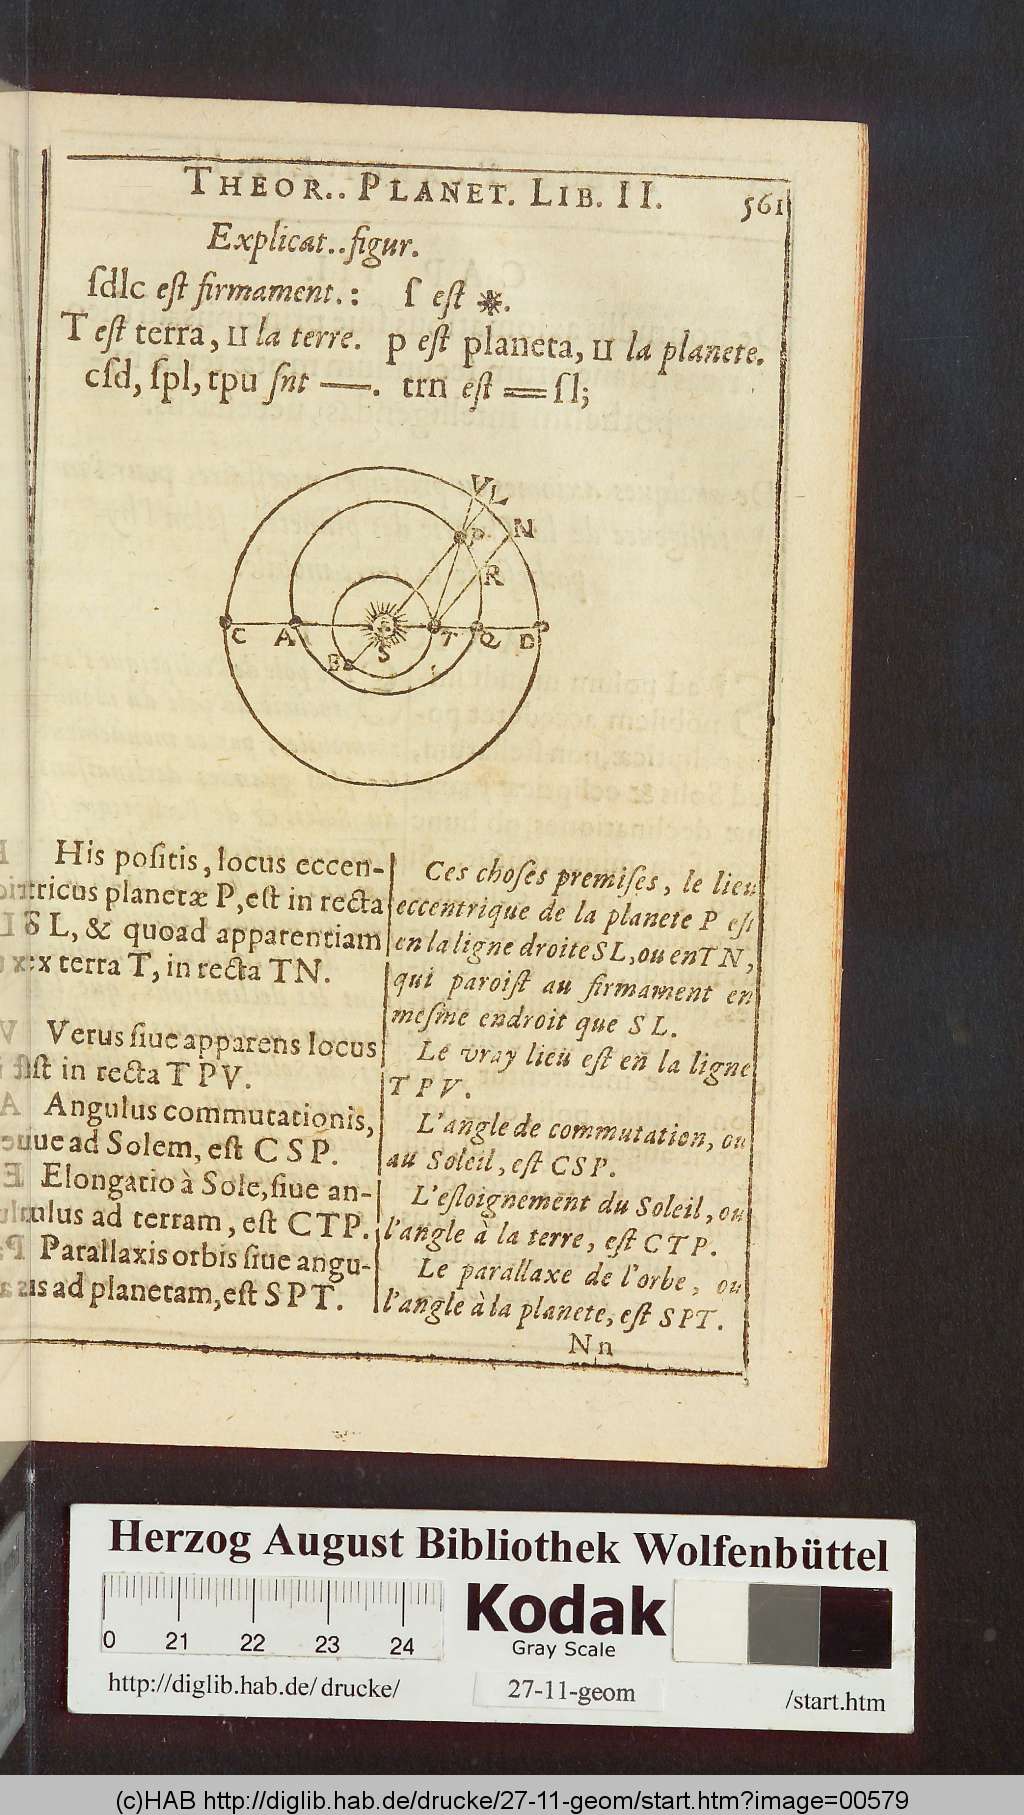 THEOR.. PLANET. LIB. II. 561
Explicat..figur.
ſdlc eſt firmament.: ſ eſt ☀.
T eſt terra, Π la terre. p eſt planeta, Π la planete.
cſd, ſpl, tpu ſnt —. trn eſt = ſl;
V L
P N
R
C A S T Q D
B
His poſitis, locus eccen-
tricus planetæ P, eſt in recta
S L, & quoad apparentiam
ex terra T, in recta TN.
Verus ſiue apparens locus
eſt in recta T P V.
Angulus commutationis,
ſiue ad Solem, eſt C S P.
Elongatio à Sole, ſiue an-
gulus ad terram, eſt CTP.
Parallaxis orbis ſiue angu-
lus ad planetam, eſt S P T.
Ces choſes premiſes, le lieu
eccentrique de la planete P eſt
en la ligne droite SL, ou en TN,
qui paroiſt au firmament en
meſme endroit que S L.
Le vray lieu eſt en la ligne
T P V.
L'angle de commutation, ou
au Soleil, eſt CSP.
L'eſloignement du Soleil, ou
l'angle à la terre, eſt CTP.
Le parallaxe de l'orbe, ou
l'angle à la planete, eſt SPT.
Nn
Herzog August Bibliothek Wolfenbüttel
0 21 22 23 24
Kodak
Gray Scale
http://diglib.hab.de/ drucke/ 27-11-geom /start.htm
(c)HAB http://diglib.hab.de/drucke/27-11-geom/start.htm?image=00579